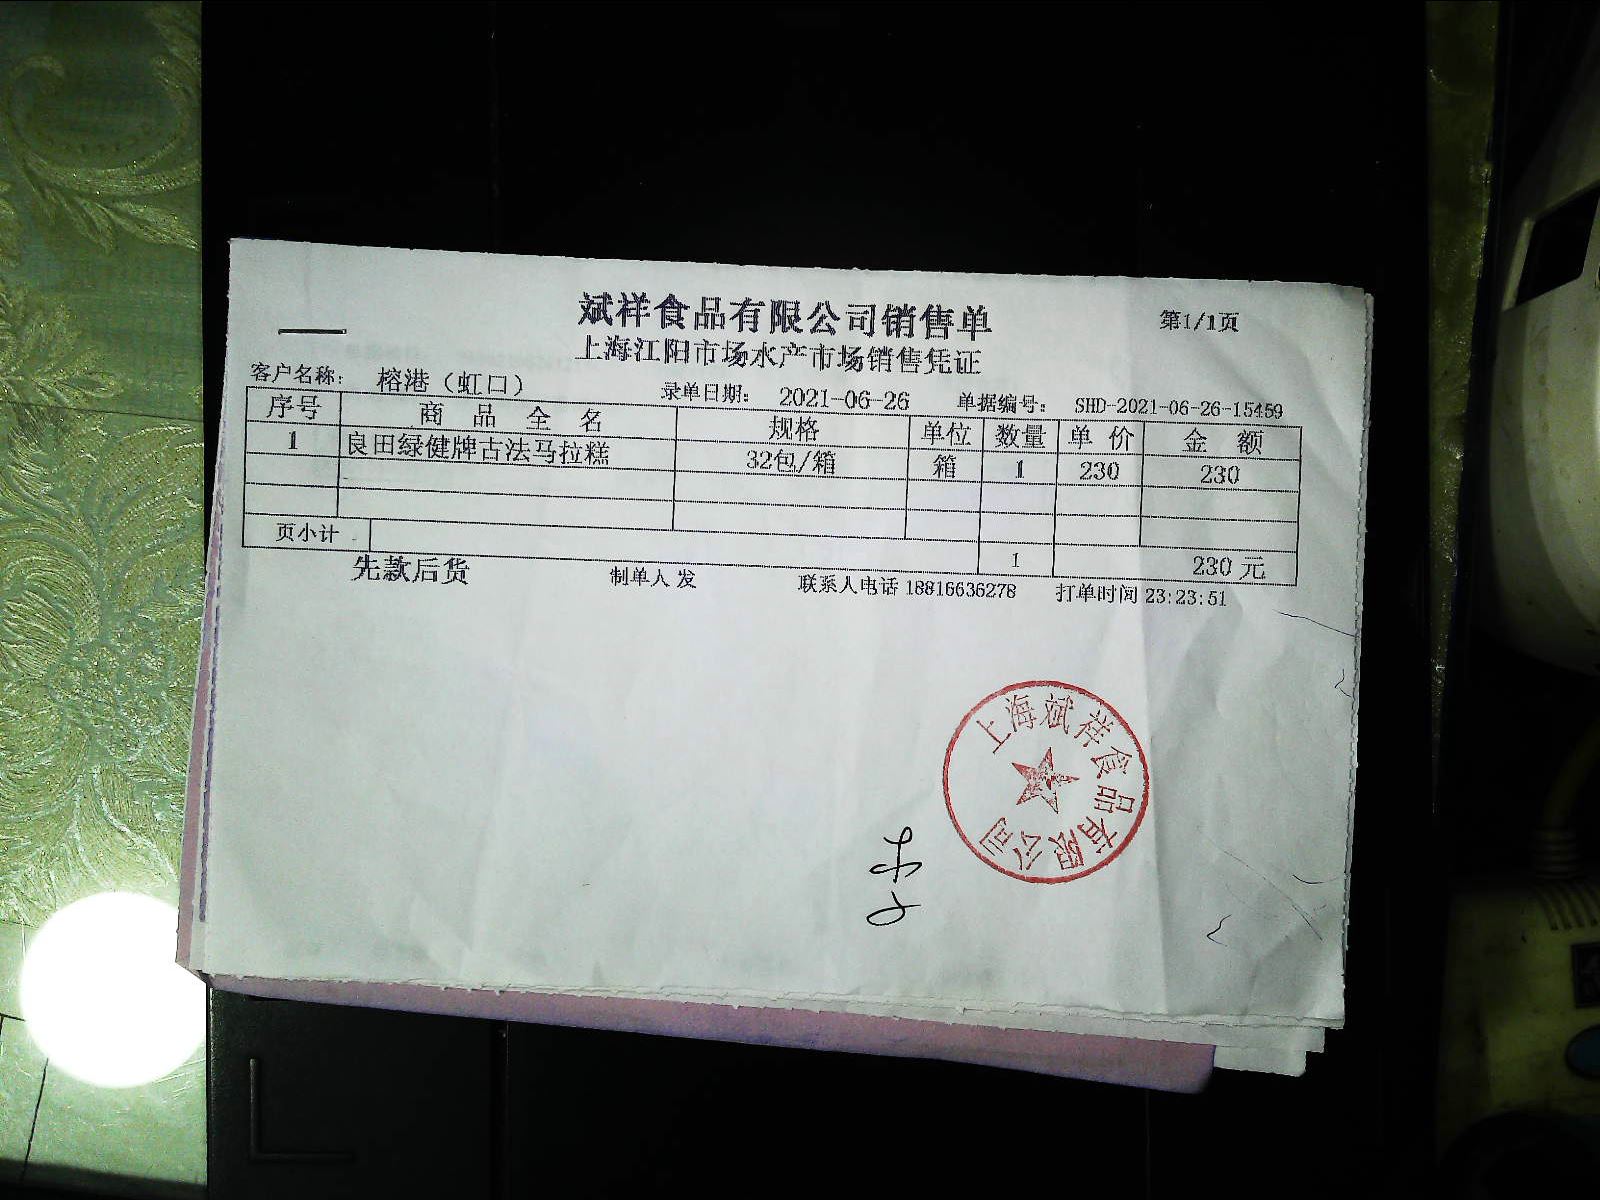 斌祥食品有限公司销售单
第1/1页
上海江阳市场水产市场销售凭证
客户名称： 榕港（虹口） 录单日期： 2021-06-26 单据编号： SHD-2021-06-26-15459
序号 商品全名 规格 单位 数量 单价 金额
1 良田绿健牌古法马拉糕 32包/箱 箱 1 230 230
页小计 1 230元
先款后货 制单人 发 联系人电话 18816636278 打单时间 23:23:51
上海斌祥食品有限公司